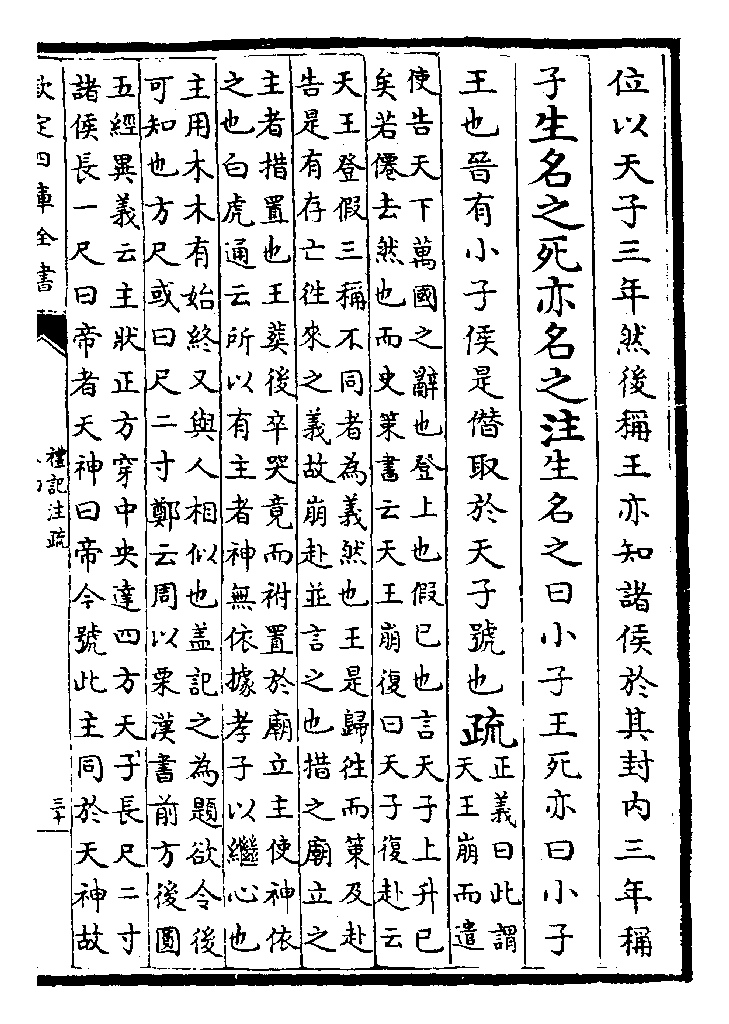 位以天子三年然後稱王亦知諸侯於其封内三年稱
子生名之死亦名之注生名之曰小子王死亦曰小子
王也晉有小子侯是僭取於天子號也疏
正義曰此謂
天王崩而遣
使告天下萬國之辭也登上也假已也言天子上升已
矣若僊去然也而史策書云天王崩復曰天子復赴云
天王登假三稱不同者為義然也王是歸往而策及赴
告是有存亡徃來之義故崩赴並言之也措之廟立之
主者措置也王葬後卒哭竟而祔置於廟立主使神依
之也白虎通云所以有主者神無依據孝子以繼心也
主用木木有始終又與人相似也盖記之為題欲令後
可知也方尺或曰尺二寸鄭云周以栗漢書前方後圓
五經異義云主狀正方穿中央達四方天子長尺二寸
諸侯長一尺曰帝者天神曰帝今號此主同於天神故
欽定四庫全書
禮記注疏
三十